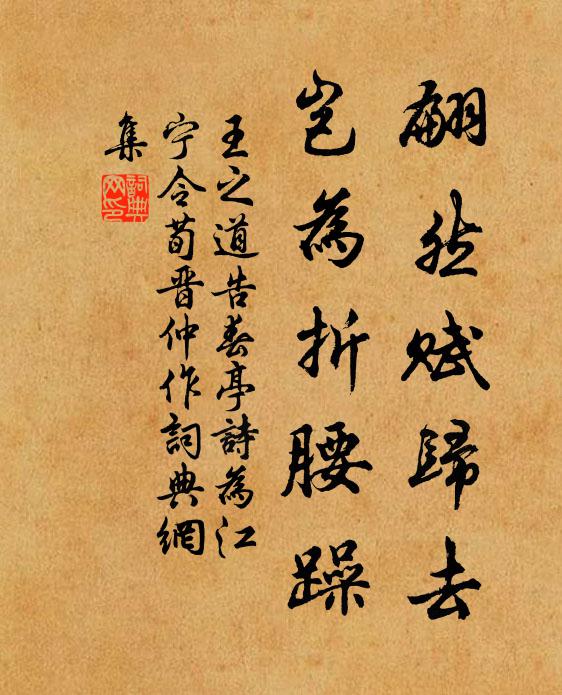 翩然賦歸去
豈為折腰躁
王之道告春亭詩為江
宁令荀晋仲作詞典網
集
詞典
网印